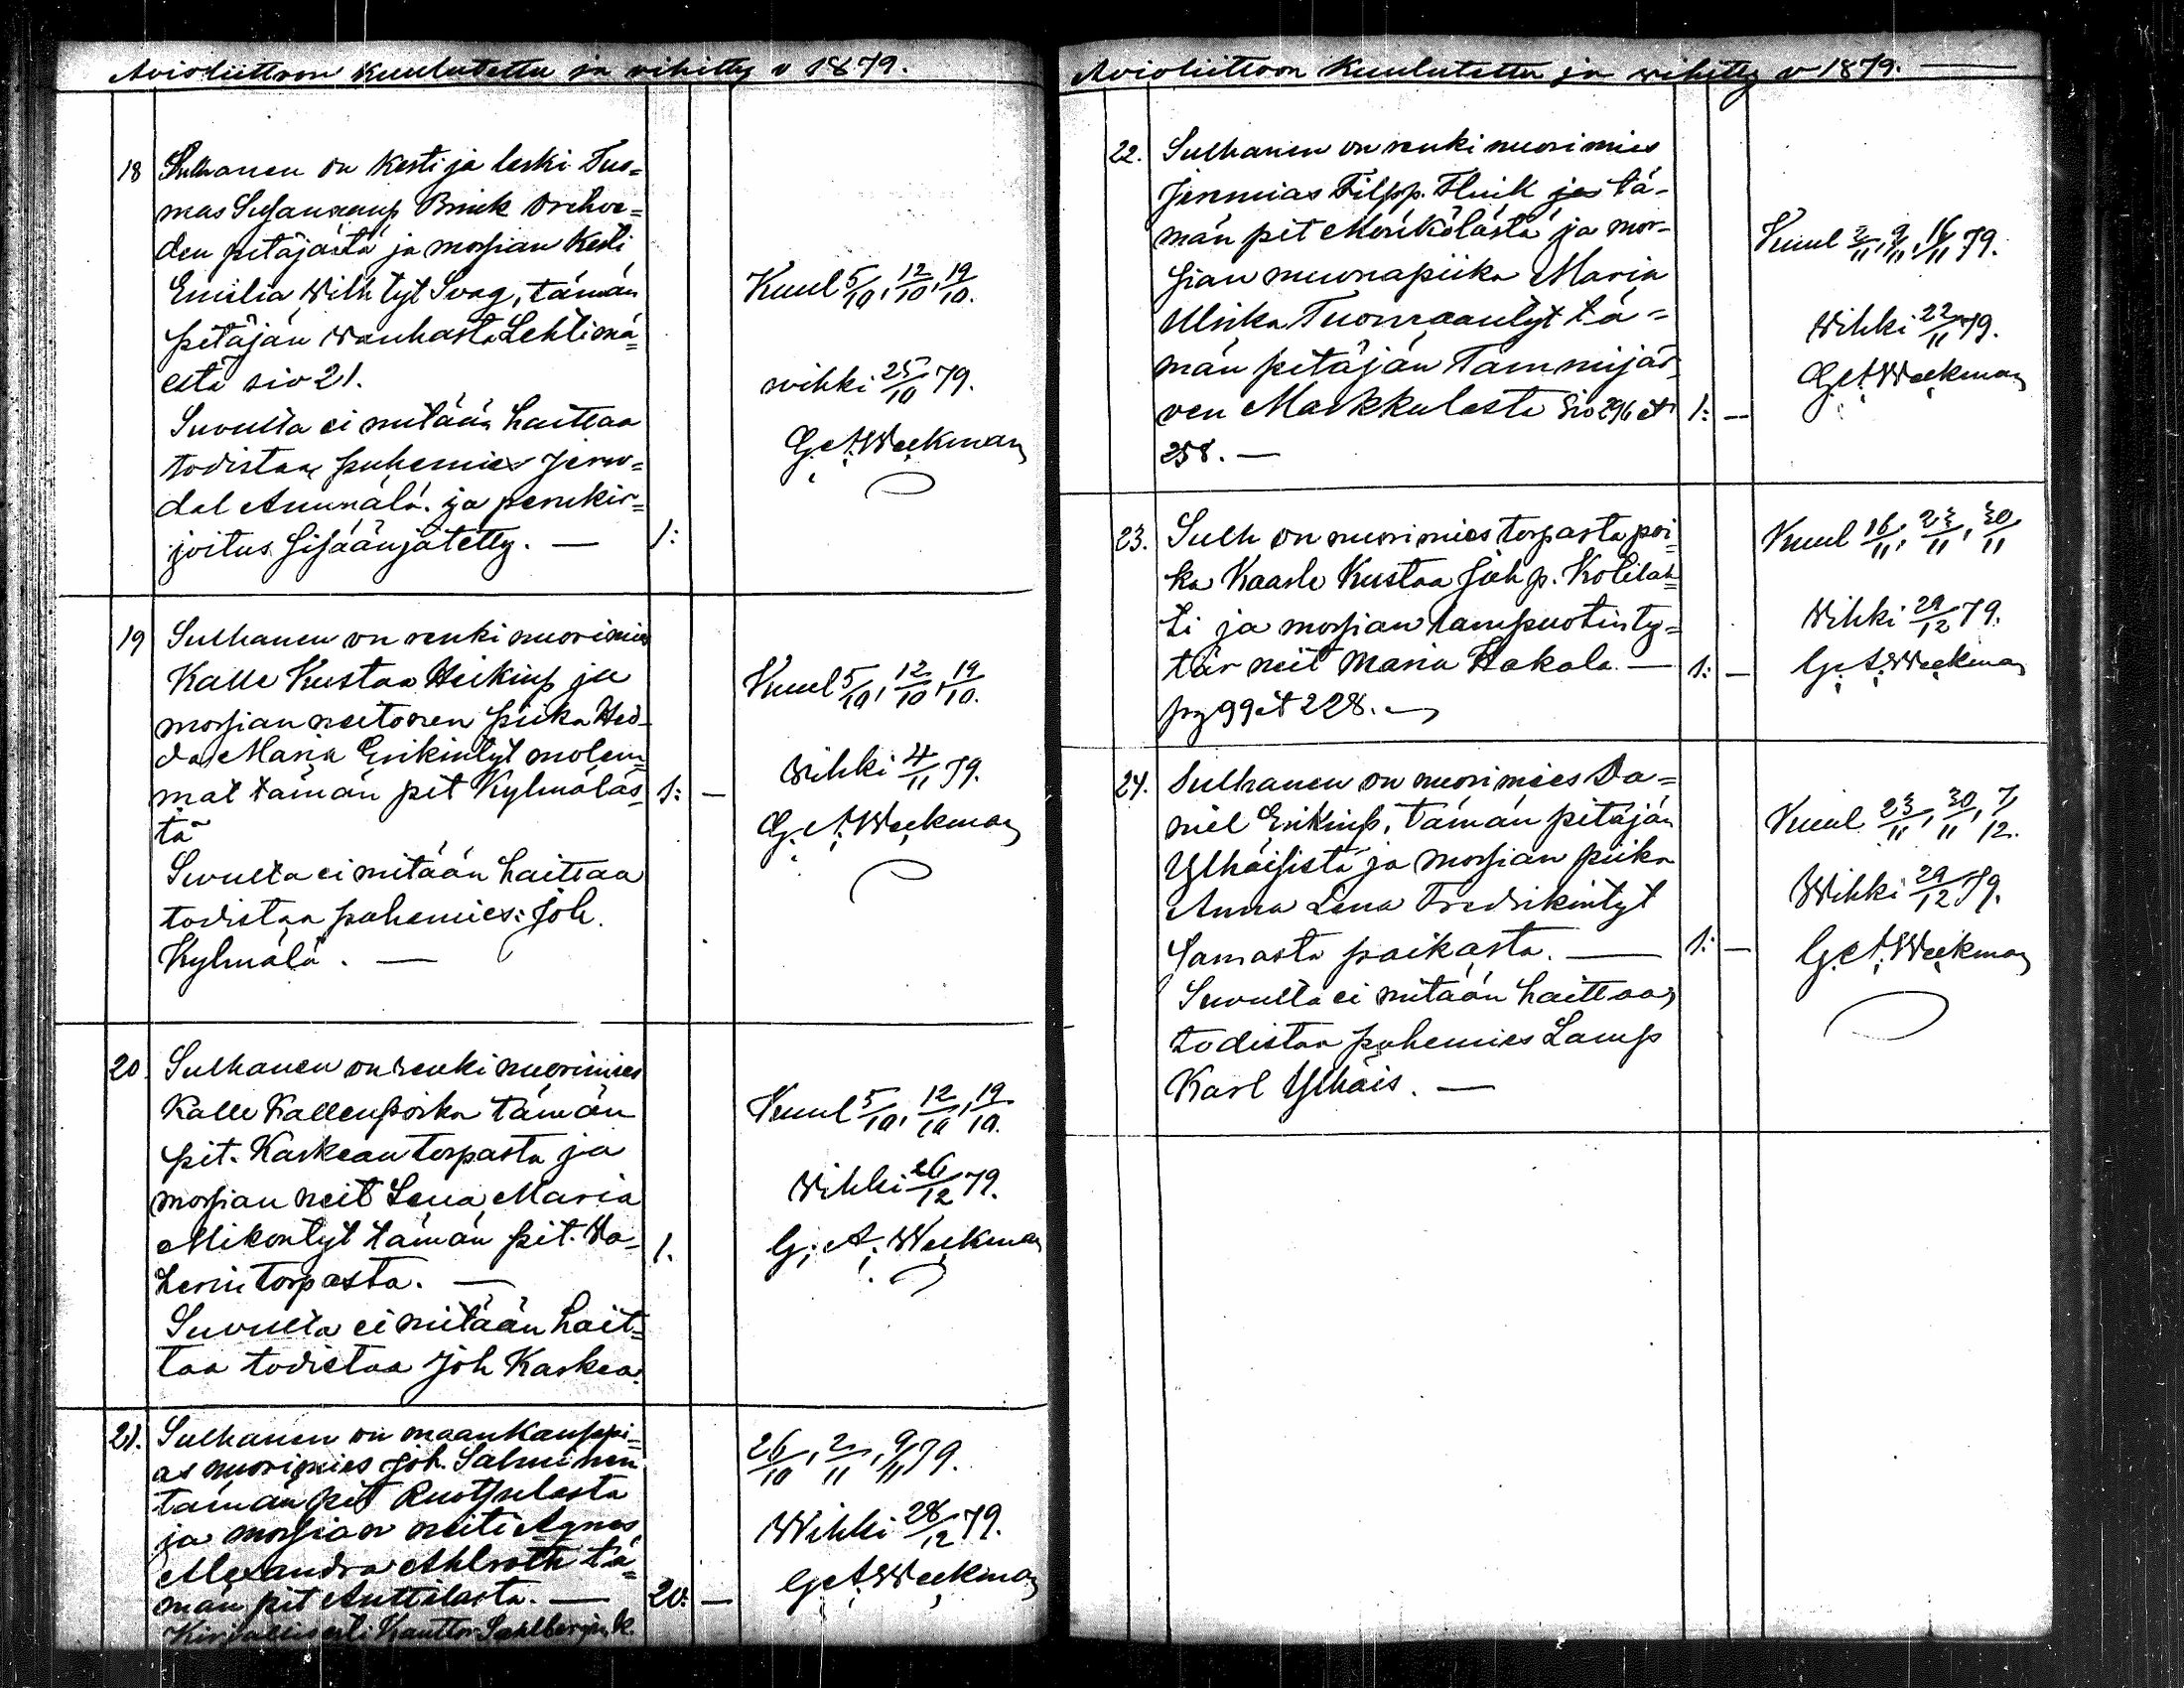 Avioliittoon Kuulutettu ja vihitty v 1879.
18 Sulhanen on Kesti ja leski Tuo=
mas Brink Orehve=
den pitäjästä ja morsian Kesti
Emilia Wilh tyt Svag, tämän
pitäjän Wanhasta Lehtimä=
estä siv 21.
Suvulta ei mitään haittaa
todistaa puhemies
ja perukir=
joitus sisäänjätetty. — 1:
Kuul 5/10, 12/10, 19/10.
vihki 25/10 79.
G. A. Weekman
19 Sulhanen on renki nuorimies
Kalle Kustaa Heikinp ja
morsian neitonen piika Hed
da Maria Erikintyt molem=
mat tämän pit Kylmäläs= 1: —
tä
Suvulta ei mitään haittaa
todistaa puhemies: Joh.
Kylmälä. —
Kuul 5/10, 12/10, 19/10.
Vihki 4/11 79.
G. A. Weekman
20. Sulhanen on renki nuorimies
Kalle Kallenpoika tämän
pit. Kaskean torpasta ja
morsian neit Lena Maria
Mikontyt tämän pit. Ha= 1.
torpasta. —
Suvulta ei mitään hait=
taa todistaa Joh Kaskea.
Kuul 5/10, 12/10, 19/10.
Vihki 26/12 79.
G. A. Weekman
21. Sulhanen on maankauppi=
as nuorimies Joh. Salminen
tämän pit Ruotsulasta
ja morsian neiti Agnes
Alexandra Ahlroth tä=
män pit Anttilasta. — 20: —
Kirjallisesti Kanttor Sahlbergin k.
26/10, 2/11, 9/11 79.
Wihki 28/12 79.
G. A. Weekman
Avioliittoon Kuulutettu ja wihitty v 1879. —
22. Sulhanen on renki nuorimies
Jeremias Filpp. tä-
män pit Mönkölästä ja mor-
sian nuorapiika Maria
Ulrika Tuomaantyt tä=
män pitäjän Tammijär
ven Markkulasta Siv 296 et 1: —
258. —
Kuul 2/11, 9/11, 16/11 79.
Wihki 22/11 79.
G. A. Weekman
23. Sulh on nuorimies torpasta poi=
ka Kaarle Kustaa Joh p. Kotilah=
ti ja morsian lampuotinty=
tär neit Maria Hakala. — 1: —
pg 99 et 228. —
Kuul 16/11, 23/11, 30/11
Vihki 29/12 79.
G. A. Weekman
24. Sulhanen on nuorimies Da=
niel Erikinp. tämän pitäjän
Ylhäisistä ja morsian piika
Anna Lena Fredrikintyt
samasta paikasta. — 1: —
Suvulta ei mitään haittaa,
todistaa puhemies Lamp
Karl Ylhäis. —
Kuul 23/11, 30/11, 7/12.
Wihki 29/12 79.
G. A. Weekman